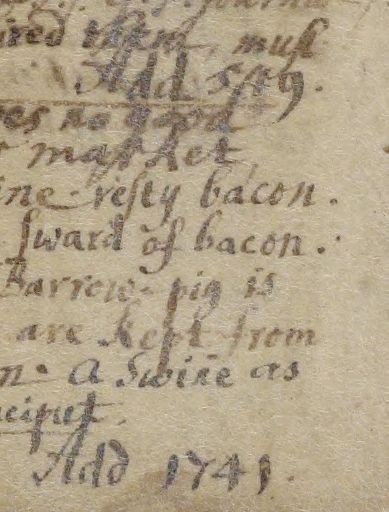 ired them, must
Add 549.
es no good
market,
ine resty bacon.
sward of bacon.
Barrow-pig is
are kept from
n. a Swine as
ciput.
Add 1741.